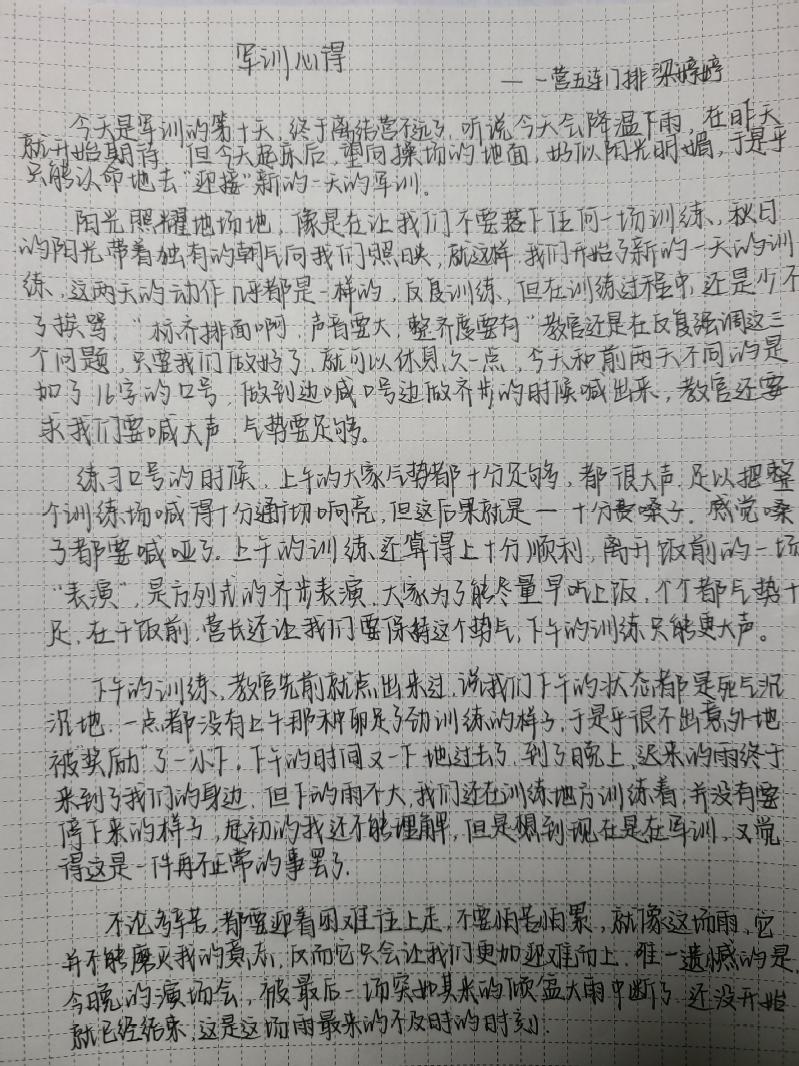 军训心得
——一营五连门排 梁婷婷
今天是军训的第十天，终于离结营不远了，听说今天会降温下雨，在昨天
就开始期待，但今天起床后，望向操场的地面，好似阳光明媚，于是乎
只能认命地去“迎接”新的一天的军训。
阳光照耀地场地，像是在让我们不要落下任何一场训练，秋日
的阳光带着独有的朝气向我们照映，就这样，我们开始了新的一天的训
练，这两天的动作几乎都是一样的，反复训练，但在训练过程中，还是少不
了挨骂，“标齐排面啊，声音要大，整齐度要有”教官还是在反复强调这三
个问题，只要我们做好了，就可以休息久一点，今天和前两天不同的是
加了16字的口号，做到边喊口号边做齐步的时候喊出来，教官还要
求我们要喊大声，气势要足够。
练习口号的时候，上午的大家气势都十分足够，都很大声，足以把整
个训练场喊得十分通切响亮，但这后果就是一十分费嗓子，感觉嗓
子都要喊哑了，上午的训练还算得上十分顺利，离开饭前的一场
“表演”，是方列式的齐步表演，大家为了能尽量早吃上饭，个个都气势十
足，在干饭前，营长还让我们要保持这个势气，下午的训练只能更大声。
下午的训练，教官先前就点出来过，说我们下午的状态都是死气沉
沉地，一点都没有上午那种卯足了劲训练的样子，于是乎很不出意外地
被“奖励”了一小下，下午的时间又一下地过去了，到了晚上，迟来的雨终于
来到了我们的身边，但下的雨不大，我们还在训练地方训练着，并没有要
停下来的样子，起初的我还不能理解，但是想到现在是在军训，又觉
得这是一件再不正常的事罢了。
不论多辛苦，都要迎着困难往上走，不要怕苦怕累，就像这场雨，它
并不能磨灭我的意志，反而它只会让我们更加迎难而上，唯一遗憾的是，
今晚的演场会，被最后一场突如其来的倾盆大雨中断了，还没开始
就已经结束，这是这场雨最来的不及时的时刻.